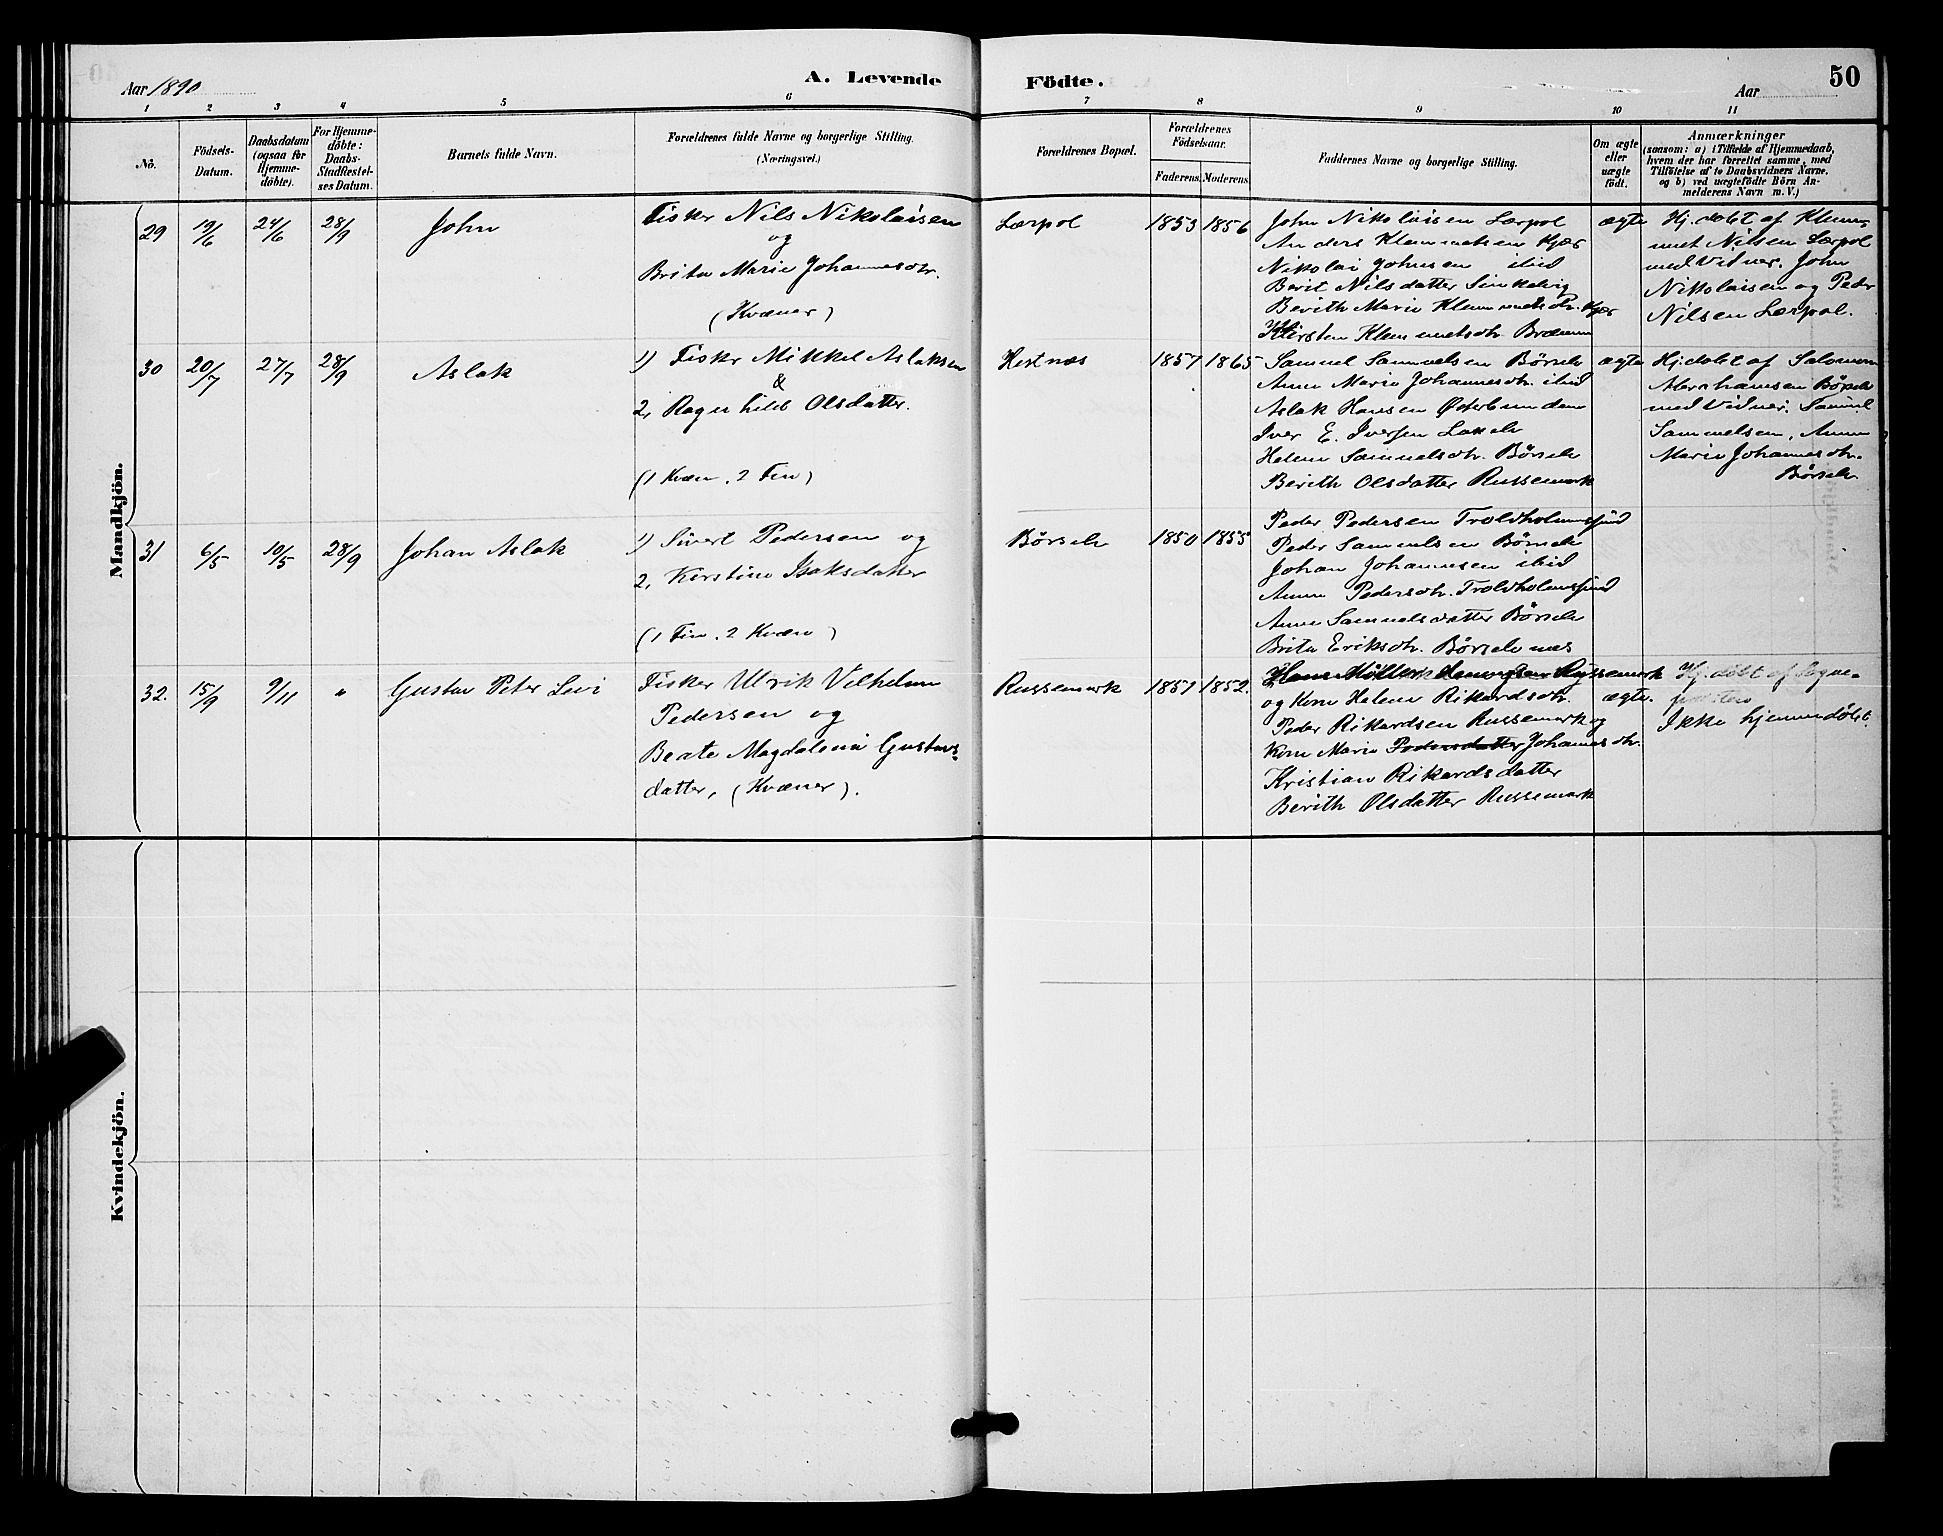 50
Aar 1890
A. Levende Födte.
Aar
1 2 3 4 5 6 7 8 9 10 11
No.
Födsels-Datum.
Daabsdatum (ogsaa for Hjemme-döbte).
For Hjemme-döbte: Daabs-Stadfestel-ses Datum.
Barnets fulde Navn.
Forældrenes fulde Navne og borgerlige Stilling.
(Næringsvei.)
Forældrenes Bopæl.
Forældrenes Födselsaar.
Faderens. Moderens.
Faddernes Navne og borgerlige Stilling.
Om ægte eller uægte födt.
Anmærkninger
(saasom: a) i Tilfælde af Hjemmedaab,
hvem der har forrettet samme, med
Tilföielse af to Daabsvidners Navne,
og b) ved uægtefödte Börn An-
melderens Navn m. V.)
Mandkjön.
29 19/6 24/6 28/9 John
Fisker Nils Nikolaisen
og
Brita Marie Johannesdtr.
(Kvæner)
Lærpol 1853 1856
John Nikolaisen Lærpol
Anders Klemmetsen Kjæs
Nikolai Johnsen ibid
Berit Nilsdatter
Berith Marie Klemmetsdtr. Kjæs
Kirsten Klemmetsdtr. Brænna
ægte
Hj. døbt af Klem-
met Nilsen Lærpol
med Vidner. John
Nikolaisen og Peder
Nilsen Lærpol.
30 20/7 27/7 28/9 Aslak
1) Fisker Mikkel Aslaksen
&
2, Ragnhild Olsdatter.
(1 Kvæn, 2 Fin)
Hestnæs 1857 1865
Samuel Samuelsen Børselv
Anne Marie Johannesdtr. ibid
Aslak Hansen Østerbunden
Iver E. Iversen Lakselv
Helene Samuelsdtr. Børselv
Berith Olsdatter Russemark
ægte
Hj. døbt af Salomon
Abrahamsen Børselv
med Vidner. Samuel
Samuelsen, Anne
Marie Johannesdtr.
Børselv
31 6/5 10/5 28/9 Johan Aslak
1) Sivert Pedersen og
2, Kirstine Isaksdatter
(1 Fin, 2 Kvæn)
Børselv 1850 1855
Peder Pedersen Troldholmsund
Peder Samuelsen Børselv
Johan Johannesen ibid
Anne Pedersdtr. Troldholmsund
Anne Samuelsdatter Børselv
Brita Eriksdtr. Børselvnæs
32. 15/9 9/11 " Gustav Peter Levi
Fisker Ulrik Vilhelm
Pedersen og
Beate Magdalena Gustavs-
datter, (Kvæner).
Russemark 1851 1852.
Hans Russemark
og Kone Helene Rikardsdtr.
Peder Rikardsen Russemark og
Kone Marie Pedersdatter Johannesdtr.
Kristian Rikardsdatter
Berith Olsdatter Russemark
ægte.
Hj. døbt af Sogne-
præsten
Ikke hjemmedøbt.
Kvindekjön.